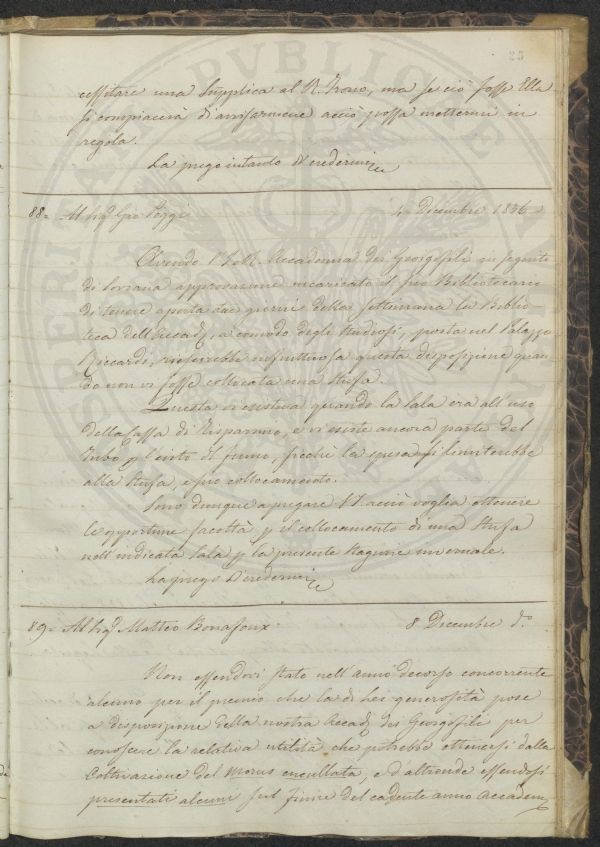 25
cessitare una Supplica al R. Trono, ma se ciò fosse Ella
si compiacerà di avvisarmene acciò possa mettermi in
regola.
La prego intanto di credermi
88= Al Sig. Gio Poggi 4 Dicembre 1836
Avendo l' Accademia dei Georgofili in seguito
di Sovrana approvazione incaricato il suo Bibliotecario
di tenere aperta due giorni della Settimana la Biblio-
teca dell'Accad, a comodo degli Studiosi, posta nel Palazzo
Riccardi, riescirebbe infruttuosa questa disposizione quan-
do non vi fosse collocata una Stufa.
Questa vi esisteva quando la Sala era all'uso
della Cassa di Risparmio, e vi esiste ancora parte del
Tubo p l'esito del fumo, sicchè la spesa si limiterebbe
alla Stufa, e suo collocamento.
Sono dunque a pregare acciò voglia ottenere
le opportune facoltà p il collocamento di una Stufa
nell'indicata Sala p la presente Stagione invernale.
La prego di credermi
89= Al Sig. Matteo Bonafoux 8 Dicembre do
Non essendovi stato nell'anno decorso concorrente
alcuno per il premio che la di Lei generosità pose
a disposizione della nostra Accad dei Georgofili per
conoscere la relativa utilità che potrebbe ottenersi dalla
Coltivazione del Morus cucullata, e d'altronde essendosi
presentati alcuni sul finire del cadente anno Accadem